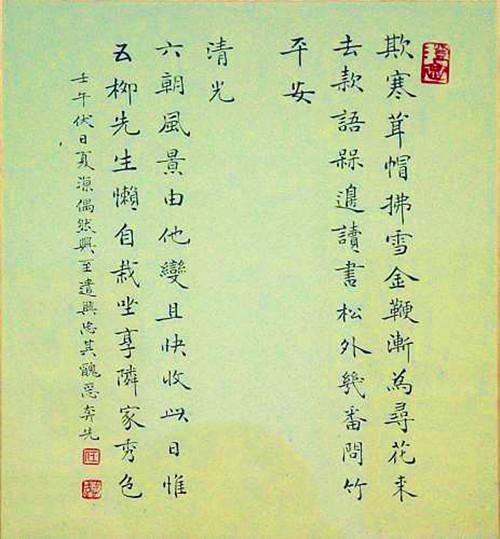 欺寒茸帽拂雪金鞭漸為尋花来
去款語槑邊讀書松外幾番問竹
平安
清光
六朝風景由他變且快收此日惟
五柳先生懶自栽坐享隣家秀色
壬午伏日夏偶然興至遣興忘其醜惡